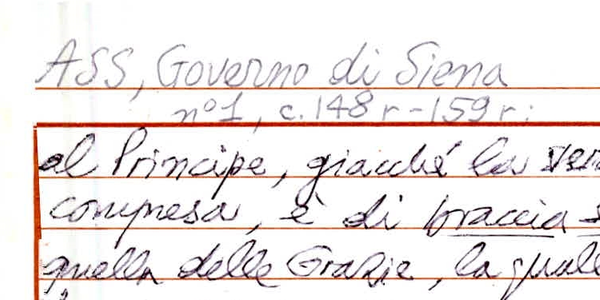 ASS, Governo di Siena
n°1, c. 148 r - 159 r:
al Principe, giacché la
compresa, è di braccia
quella delle Grazie, la quale